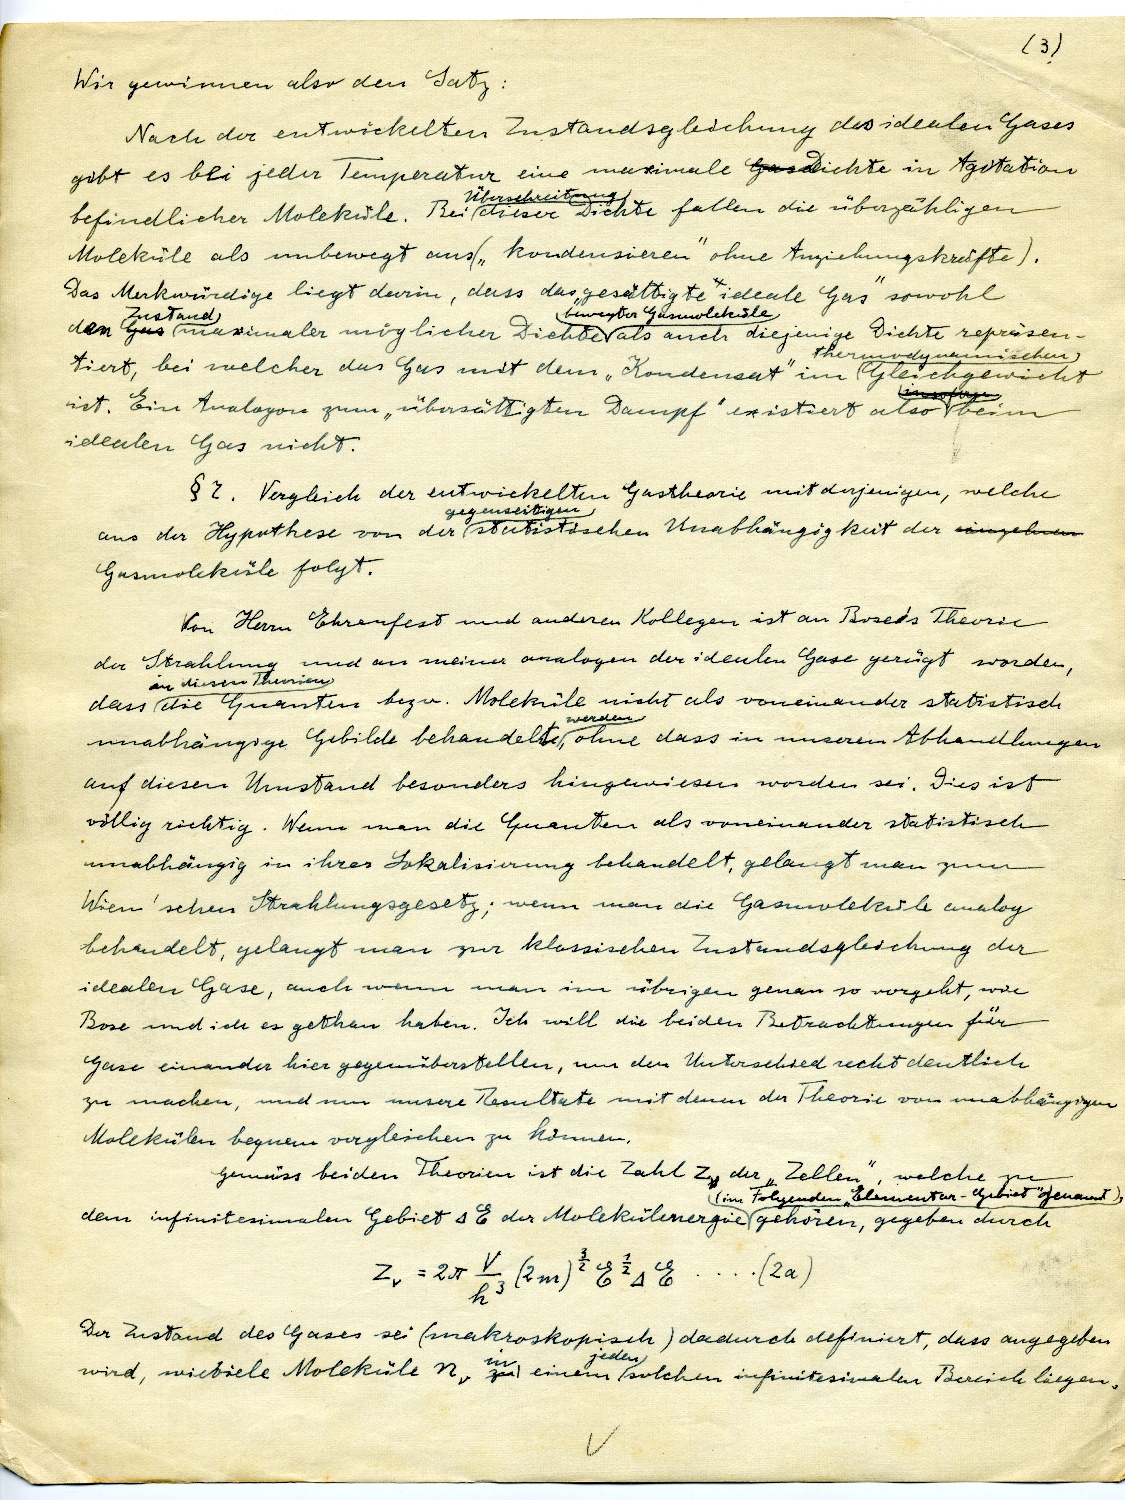 (3)
Wir gewinnen also den Satz:
Nach der entwickelten Zustandsgleichung des idealen Gases
gibt es bei jeder Temperatur eine maximale Gas Dichte in Agitation
Überschreitung
befindlicher Moleküle. Bei dieser Dichte fallen die überzähligen
Moleküle als unbewegt aus („kondensieren" ohne Anziehungskräfte).
Das Merkwürdige liegt darin, dass das „gesättigte ideale Gas" sowohl
Zustand bewegter Gasmoleküle
den Gas maximaler möglicher Dichte als auch diejenige Dichte repräsen-
thermodynamischen
tiert, bei welcher das Gas mit dem „Kondensat" im Gleichgewicht
insofern
ist. Ein Analogon zum „übersättigten Dampf" existiert also beim
idealen Gas nicht.
§ 7. Vergleich der entwickelten Gastheorie mit derjenigen, welche
gegenseitigen
aus der Hypothese von der statistischen Unabhängigkeit der einzelnen
Gasmoleküle folgt.
Von Herrn Ehrenfest und anderen Kollegen ist an Bose's Theorie
der Strahlung und an meiner analogen der idealen Gase gerügt worden,
in diesen Theorien
dass die Quanten bezw. Moleküle nicht als voneinander statistisch
werden
unabhängige Gebilde behandelt, ohne dass in unseren Abhandlungen
auf diesen Umstand besonders hingewiesen worden sei. Dies ist
völlig richtig. Wenn man die Quanten als voneinander statistisch
unabhängig in ihrer Lokalisierung behandelt, gelangt man zum
Wien'schen Strahlungsgesetz; wenn man die Gasmoleküle analog
behandelt, gelangt man zur klassischen Zustandsgleichung der
idealen Gase, auch wenn man im übrigen genau so vorgeht, wie
Bose und ich es gethan haben. Ich will die beiden Betrachtungen für
Gase einander hier gegenüberstellen, um den Unterschied recht deutlich
zu machen, und um unsere Resultate mit denen der Theorie von unabhängigen
Molekülen bequem vergleichen zu können.
Gemäss beiden Theorien ist die Zahl z_ν der „Zellen", welche zu
(im Folgenden „Elementar-Gebiet" genannt)
dem infinitesimalen Gebiet Δ E der Molekülenergie gehören, gegeben durch
Z_ν = 2π V/h³ (2m)^{3/2} E^{1/2} Δ E .....(2a)
Der Zustand des Gases sei (makroskopisch) dadurch definiert, dass angegeben
in jeden
wird, wieviele Moleküle n_ν zu einem solchen infinitesimalen Bereich liegen.